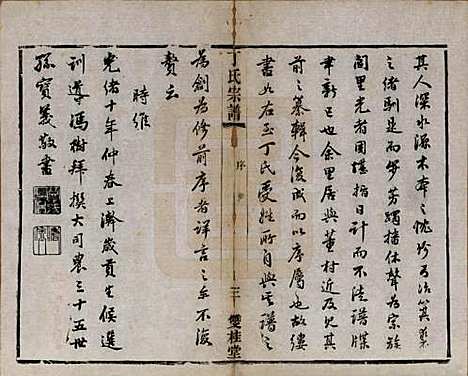 其人深水源木本之忱兮乃法箕裘
之緒馴是而夢芳躅播休聲為宗族
閭里光者固堪指日計而不法譜牒
聿新已也余里居與董村近及見其
前之纂輯今復成而以序屬也故縷
書如右至丁氏受姓所自與譜之
為創為修前序者詳言之無不復
贅云
時維
光緒十年仲春上澣歲貢生候選
訓導馮樹拜撰大司農三十五世
孫寶義敬書
丁氏宗譜
序
三
雙桂堂